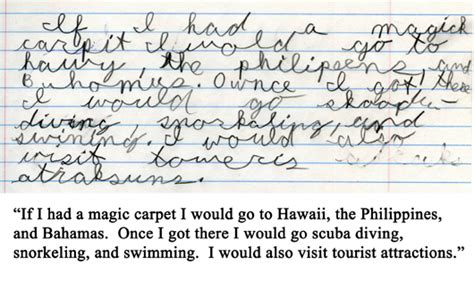 If I had a magick
carpit I wold go to
hawy, the philipoens and
Buhomus. Ownce I got there
I would go skoopu
diving, snorkaling, and
swining. I would also
visit tomeris
atraksuns.
"If I had a magic carpet I would go to Hawaii, the Philippines,
and Bahamas.  Once I got there I would go scuba diving,
snorkeling, and swimming.  I would also visit tourist attractions."